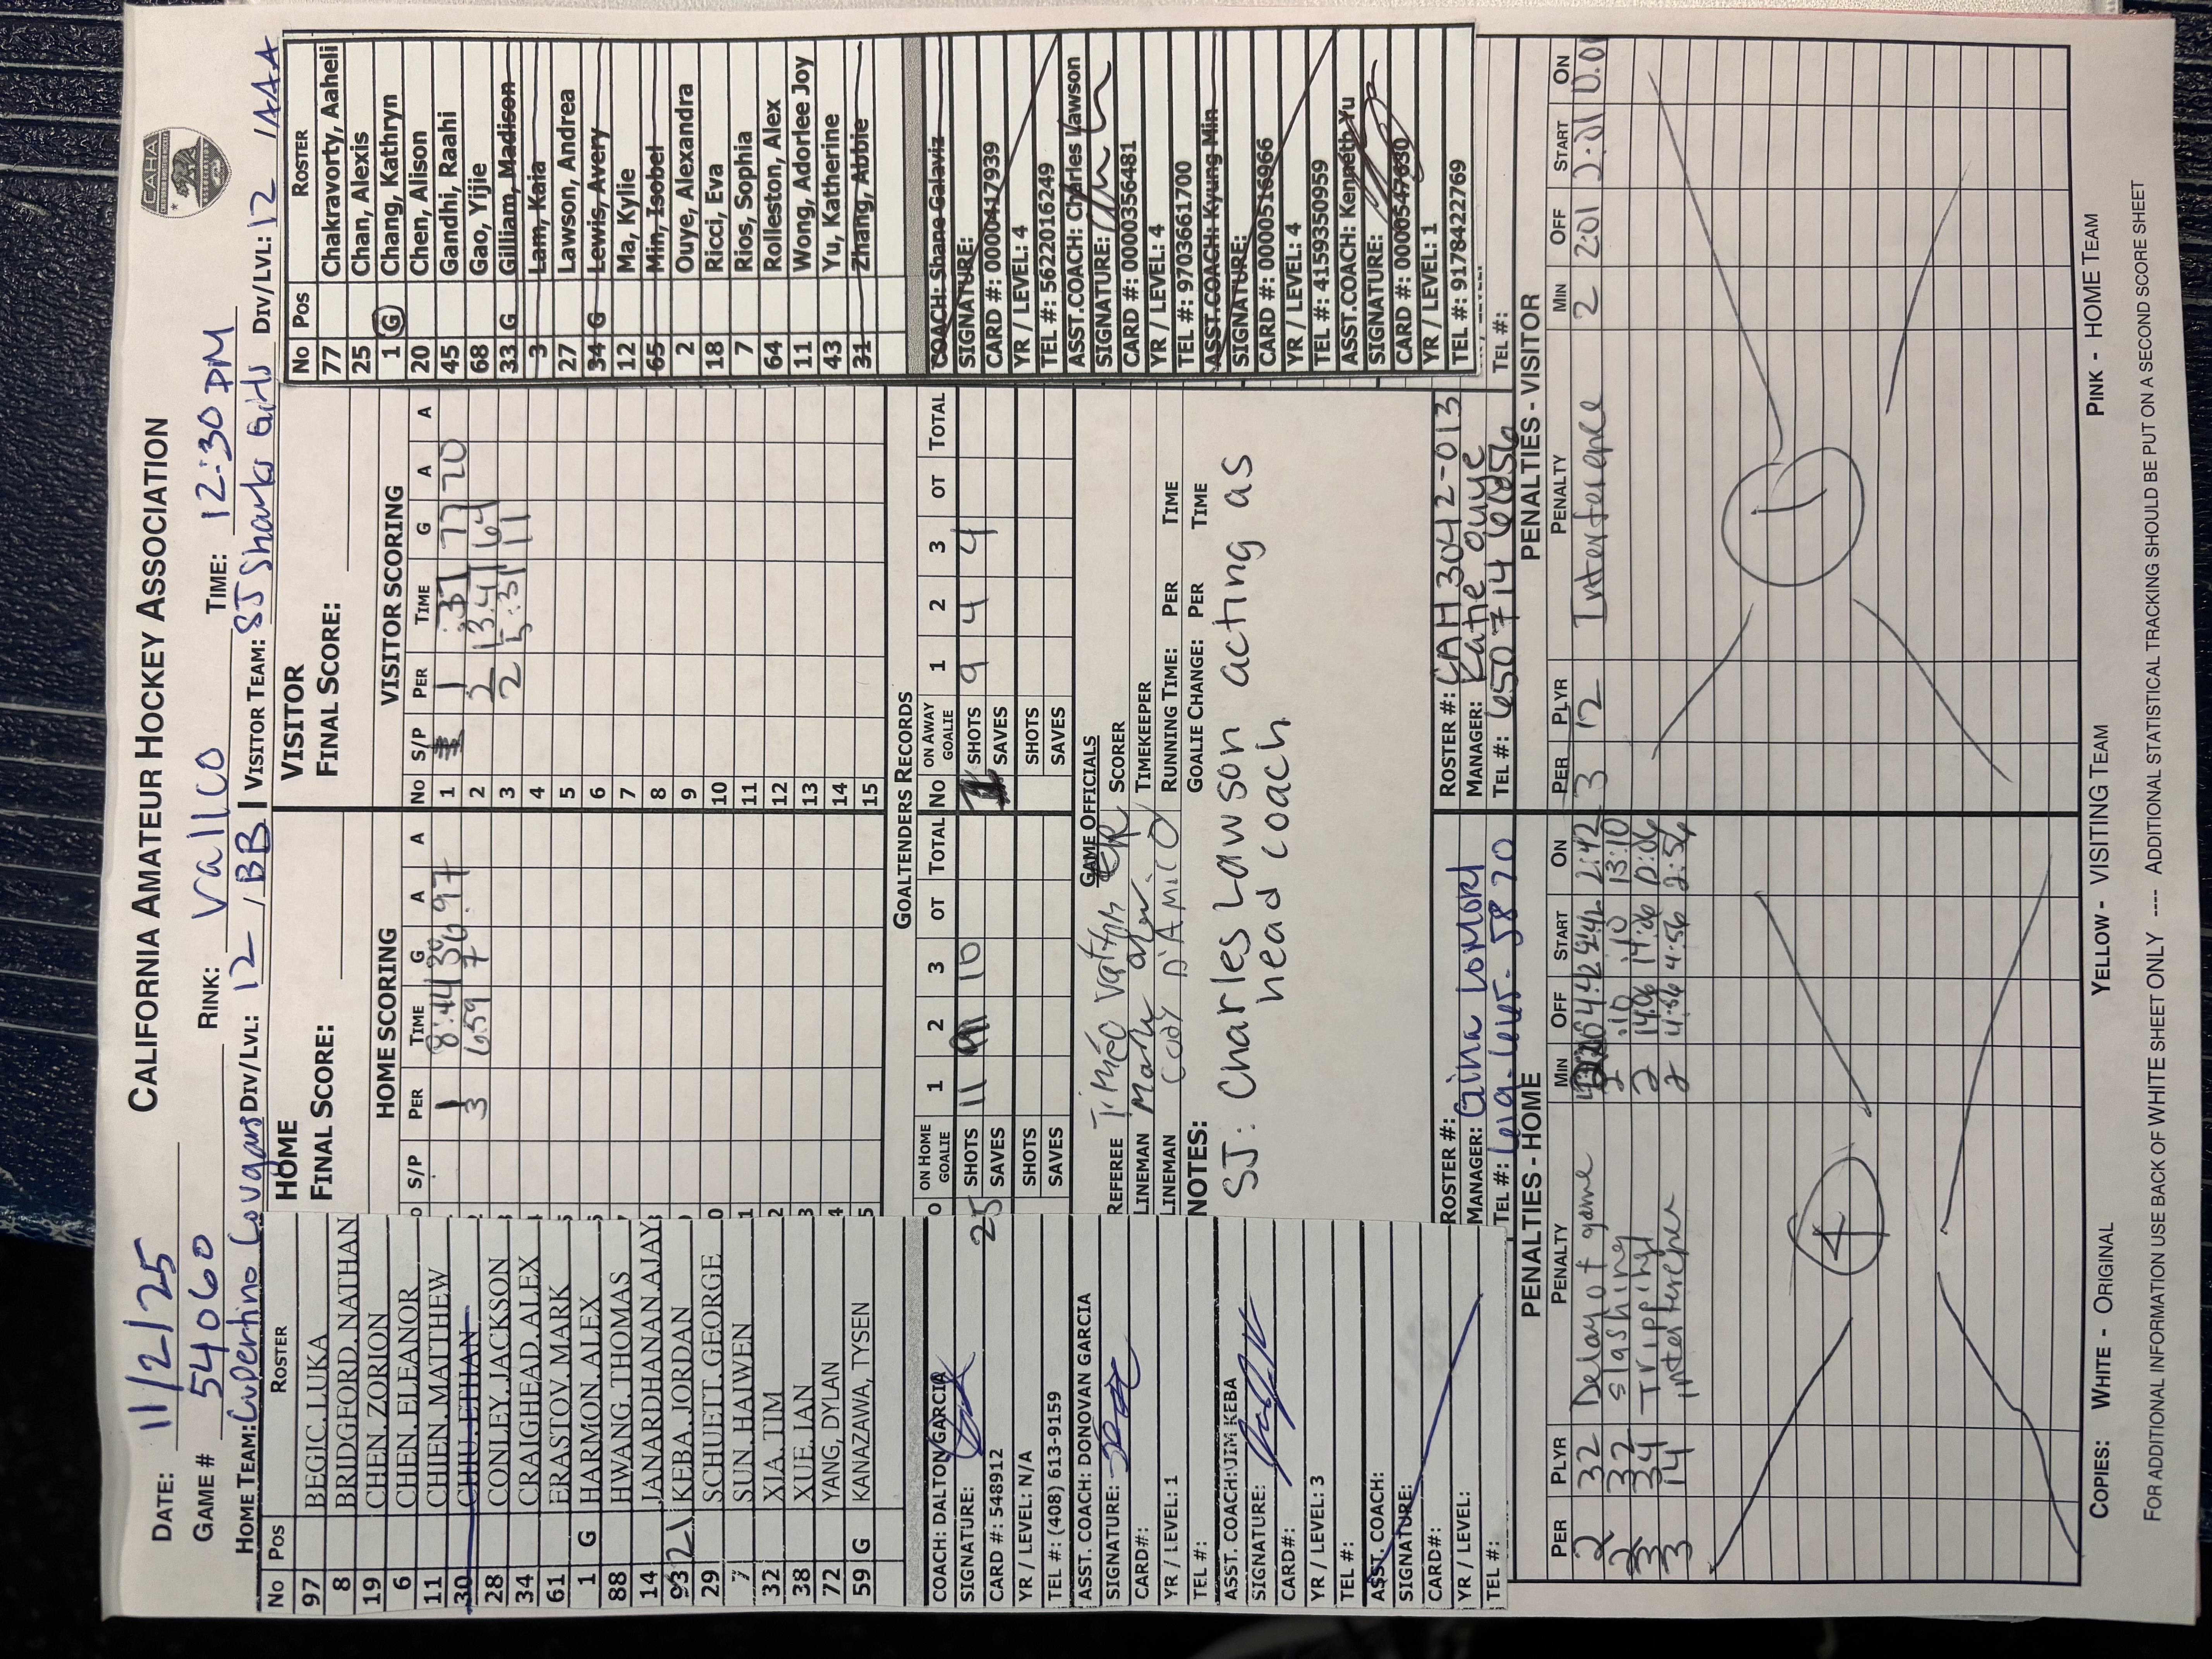 CALIFORNIA AMATEUR HOCKEY ASSOCIATION
CAHA
DATE: 11/2/25
GAME # 54060 RINK: Vallco TIME: 12:30 PM
HOME TEAM: Cupertino Cougars DIV/LVL: 12 / BB VISITOR TEAM: SJ Sharks Girls DIV/LVL: 12 / AAA
No Pos ROSTER
97 BEGIC, LUKA
8 BRIDGFORD, NATHAN
19 CHEN, ZORION
6 CHEN, ELEANOR
11 CHIEN, MATTHEW
30 CHIU, ETHAN
28 CONLEY, JACKSON
34 CRAIGHEAD, ALEX
61 ERASTOV, MARK
1 G HARMON, ALEX
88 HWANG, THOMAS
14 JANARDHANAN, AJAY
93 21 KEBA, JORDAN
29 SCHUETT, GEORGE
7 SUN, HAIWEN
32 XIA, TIM
38 XUE, IAN
72 YANG, DYLAN
59 G KANAZAWA, TYSEN
COACH: DALTON GARCIA
SIGNATURE:
CARD #: 548912
YR / LEVEL: N/A
TEL #: (408) 613-9159
ASST. COACH: DONOVAN GARCIA
SIGNATURE:
CARD#:
YR / LEVEL: 1
TEL #:
ASST. COACH: JIM KEBA
SIGNATURE:
CARD#:
YR / LEVEL: 3
TEL #:
ASST. COACH:
SIGNATURE:
CARD#:
YR / LEVEL:
TEL #:
HOME
FINAL SCORE:
HOME SCORING
S/P PER TIME G A A
1 8:44 38 97
3 6:59 7
VISITOR
FINAL SCORE:
VISITOR SCORING
No S/P PER TIME G A A
1 1 :37 77 20
2 2 13:41 64
3 2 5:31 11
4
5
6
7
8
9
10
11
12
13
14
15
GOALTENDERS RECORDS
ON HOME GOALIE 1 2 3 OT TOTAL No ON AWAY GOALIE 1 2 3 OT TOTAL
25 SHOTS 11 10 SHOTS 9 4 4
SAVES SAVES
SHOTS SHOTS
SAVES SAVES
GAME OFFICIALS
REFEREE SCORER
LINEMAN TIMEKEEPER
LINEMAN Cody D'Amico RUNNING TIME: PER TIME
NOTES: GOALIE CHANGE: PER TIME
SJ: Charles Lawson acting as
head coach
ROSTER #:
MANAGER: Gina
TEL #:
ROSTER #: CAH3042-013
MANAGER: Katie Ouye
TEL #: 650 714 6856
No Pos ROSTER
77 Chakravorty, Aaheli
25 Chan, Alexis
1 G Chang, Kathryn
20 Chen, Alison
45 Gandhi, Raahi
68 Gao, Yijie
33 G Gilliam, Madison
3 Lam, Kaia
27 Lawson, Andrea
34 G Lewis, Avery
12 Ma, Kylie
65 Min, Isobel
2 Ouye, Alexandra
18 Ricci, Eva
7 Rios, Sophia
64 Rolleston, Alex
11 Wong, Adorlee Joy
43 Yu, Katherine
31 Zhang, Abbie
COACH: Shane Galaviz
SIGNATURE:
CARD #: 0000417939
YR / LEVEL: 4
TEL #: 5622016249
ASST.COACH: Charles Lawson
SIGNATURE:
CARD #: 0000356481
YR / LEVEL: 4
TEL #: 9703661700
ASST.COACH: Kyung Min
SIGNATURE:
CARD #: 0000516966
YR / LEVEL: 4
TEL #: 4159350959
ASST.COACH: Kenneth Yu
SIGNATURE:
CARD #: 0000547630
YR / LEVEL: 1
TEL #: 9178422769
TEL #:
PENALTIES - HOME
PER PLYR PENALTY MIN OFF START ON
2 32 Delay of game 2:42 2:42
2 32 slashing 2 :10 :10 13:10
3 34 Tripping 2 14:06 14:06 12:06
3 14 interference 2 4:56 4:56 2:56
4
PENALTIES - VISITOR
PER PLYR PENALTY MIN OFF START ON
3 12 Interference 2 2:01 2:01 0:01
1
COPIES: WHITE - ORIGINAL YELLOW - VISITING TEAM PINK - HOME TEAM
FOR ADDITIONAL INFORMATION USE BACK OF WHITE SHEET ONLY ---- ADDITIONAL STATISTICAL TRACKING SHOULD BE PUT ON A SECOND SCORE SHEET